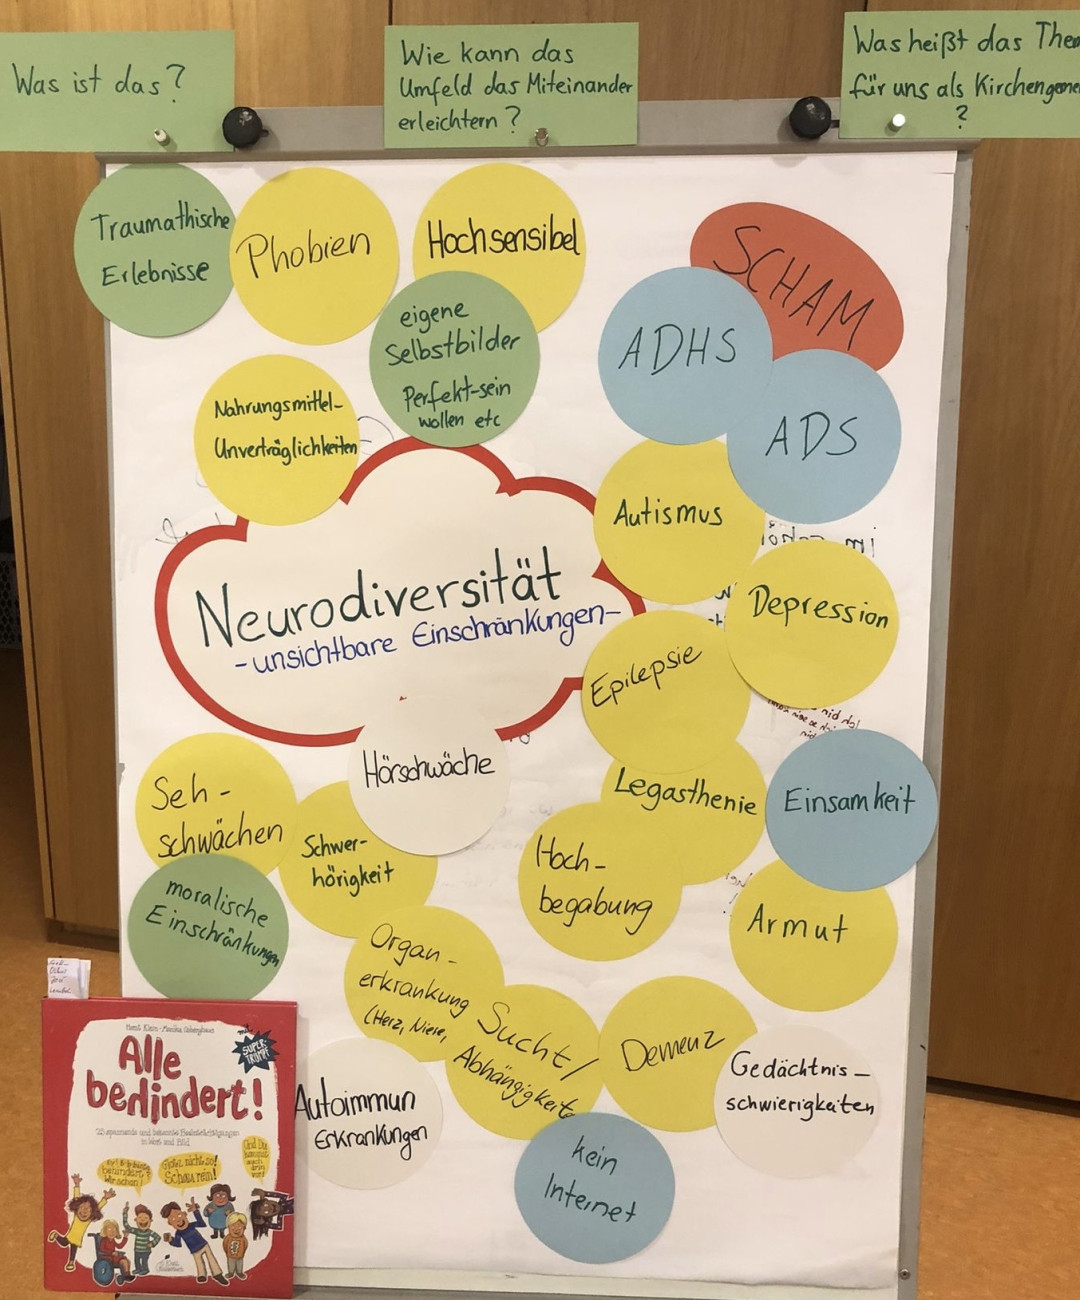 Was ist das?
Wie kann das
Umfeld das Miteinander
erleichtern?
Was heißt das
für uns als
?
Traumathische
Erlebnisse
Phobien
Hochsensibel
SCHAM
eigene
Selbstbilder
Perfekt-sein
wollen etc
ADHS
ADS
Nahrungsmittel-
Unverträglichkeiten
Autismus
Neurodiversität
-unsichtbare Einschränkungen-
Depression
Epilepsie
Hörschwäche
Legasthenie
Einsamkeit
Seh-
schwächen
Schwer-
hörigkeit
Hoch-
begabung
moralische
Einschränkungen
Armut
Organ-
erkrankung
(Herz, Niere,
Sucht/
Abhängigkeite
Demenz
Gedächtnis-
schwierigkeiten
Autoimmun
Erkrankungen
kein
Internet
Horst Klein · Monika Osberghaus
Alle
behindert!
mit
SUPER-
TRUMPF
25 spannende und bekannte Beeinträchtigungen
in Wort und Bild
Schau rein!